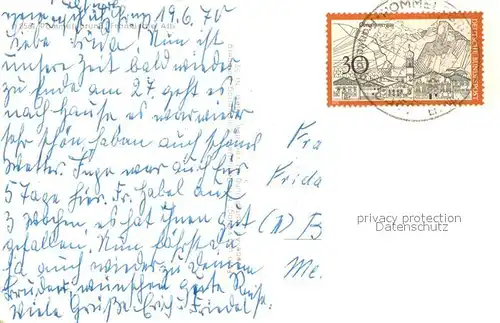 19.6.70
liebe Frida! Nun ist
unsere Zeit bald wieder
zu ende am 27. geht es
nach hause es war wieder
sehr schön, haben auch schönes
Wetter. Inge war auch für
5 Tage hier. Fr. Habel auf
3 Wochen, es hat ihnen gut
gefallen. Nun fährst du
ja auch wieder zu Deinem
Bruder wünschen gute Reise.
Viele Grüße Erich u Friedel
Oberammergau
30
Fra
Frida
B
Me.
privacy protection
Datenschutz